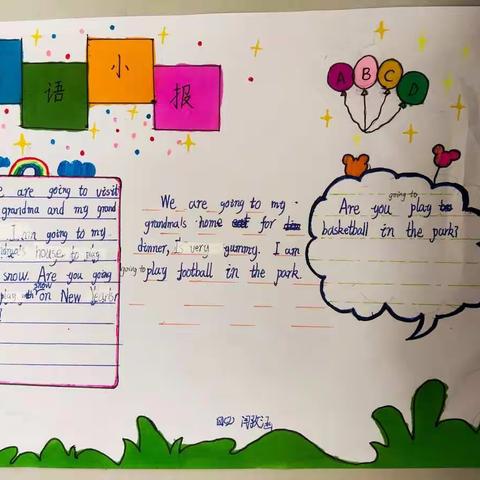 语 小 报
A B C D
are going to visit
grandma and my grand
I am going to my
house to play
snow. Are you going
play with snow on New Year's
We are going to my
grandma's home for
dinner, It's very yummy. I am
going to play football in the park.
Are you going to play
basketball in the park?